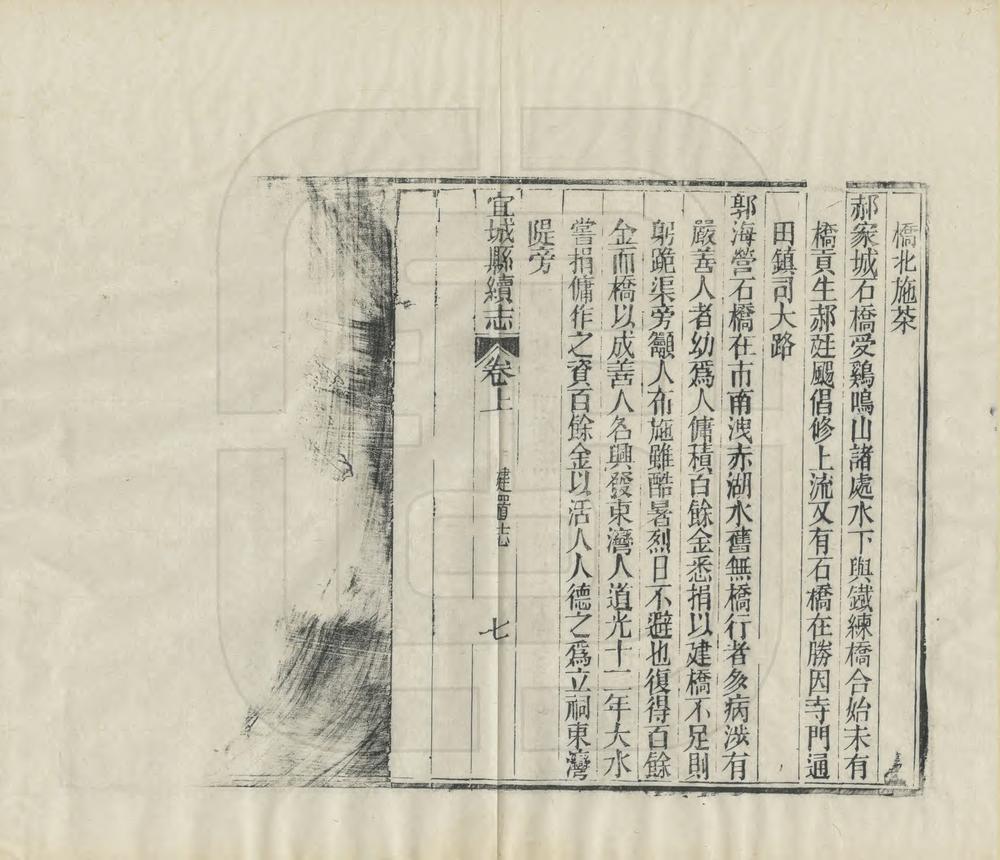 橋北施茶
郝家城石橋受鷄鳴山諸處水下與鐵練橋合始未有
橋貢生郝廷颺倡修上流又有石橋在勝因寺門通
田鎮司大路
郭海營石橋在市南洩赤湖水舊無橋行者多病涉有
嚴善人者幼爲人傭積百餘金悉捐以建橋不足則
躬跪渠旁籲人布施雖酷暑烈日不避也復得百餘
金而橋以成善人名興發東灣人道光十二年大水
嘗捐傭作之資百餘金以活人人德之爲立祠東灣
隄旁
宜城縣續志 卷上 建置志 七